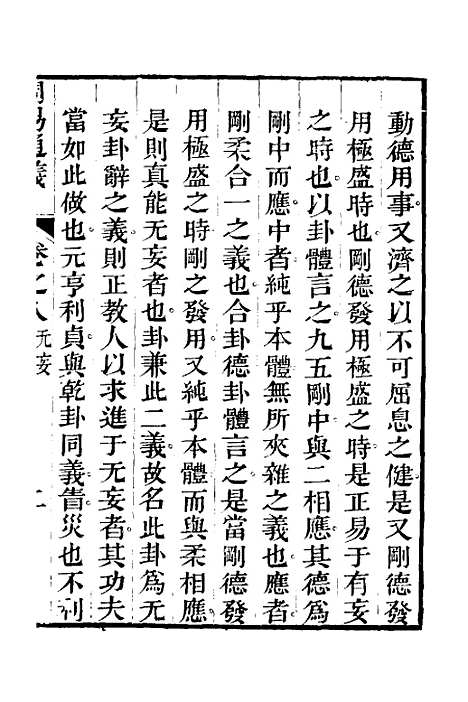 動德用事又濟之以不可屈息之健是又剛德發
用極盛時也剛德發用極盛之時是正易于有妄
之時也以卦體言之九五剛中與二相應其德為
剛中而應中者純乎本體無所夾雜之義也應者
剛柔合一之義也合卦德卦體言之是當剛德發
用極盛之時剛之發用又純乎本體而與柔相應
是則真能无妄者也卦兼此二義故名此卦為无
妄卦辭之義則正教人以求進于无妄者其功夫
當如此做也元亨利貞與乾卦同義眚災也不利
周易通義 卷之八 无妄 二